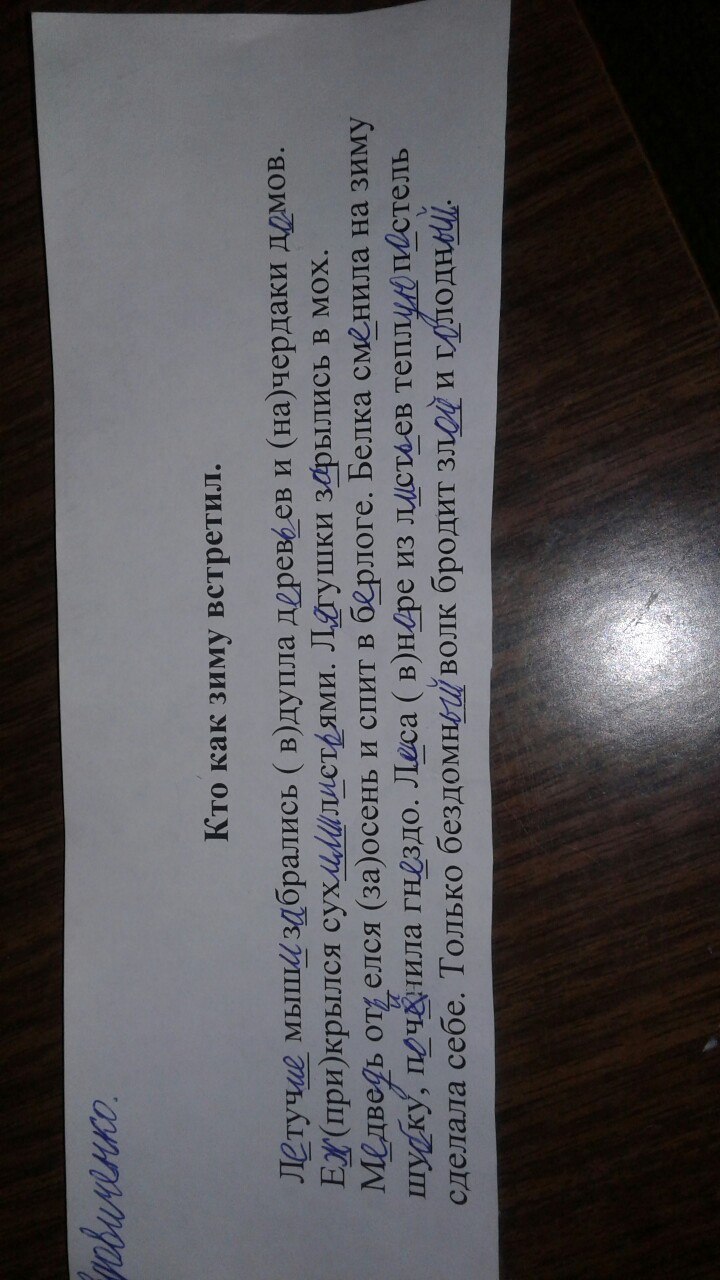 Кто как зиму встретил.
Летучие мыши забрались ( в)дупла деревьев и (на)чердаки домов.
Еж(при)крылся сухими листьями. Лягушки зарылись в мох.
Медведь отъ елся (за)осень и спит в берлоге. Белка сменила на зиму
шубку, починила гнездо. Леса ( в)норе из листьев теплую постель
сделала себе. Только бездомный волк бродит злой и голодный.